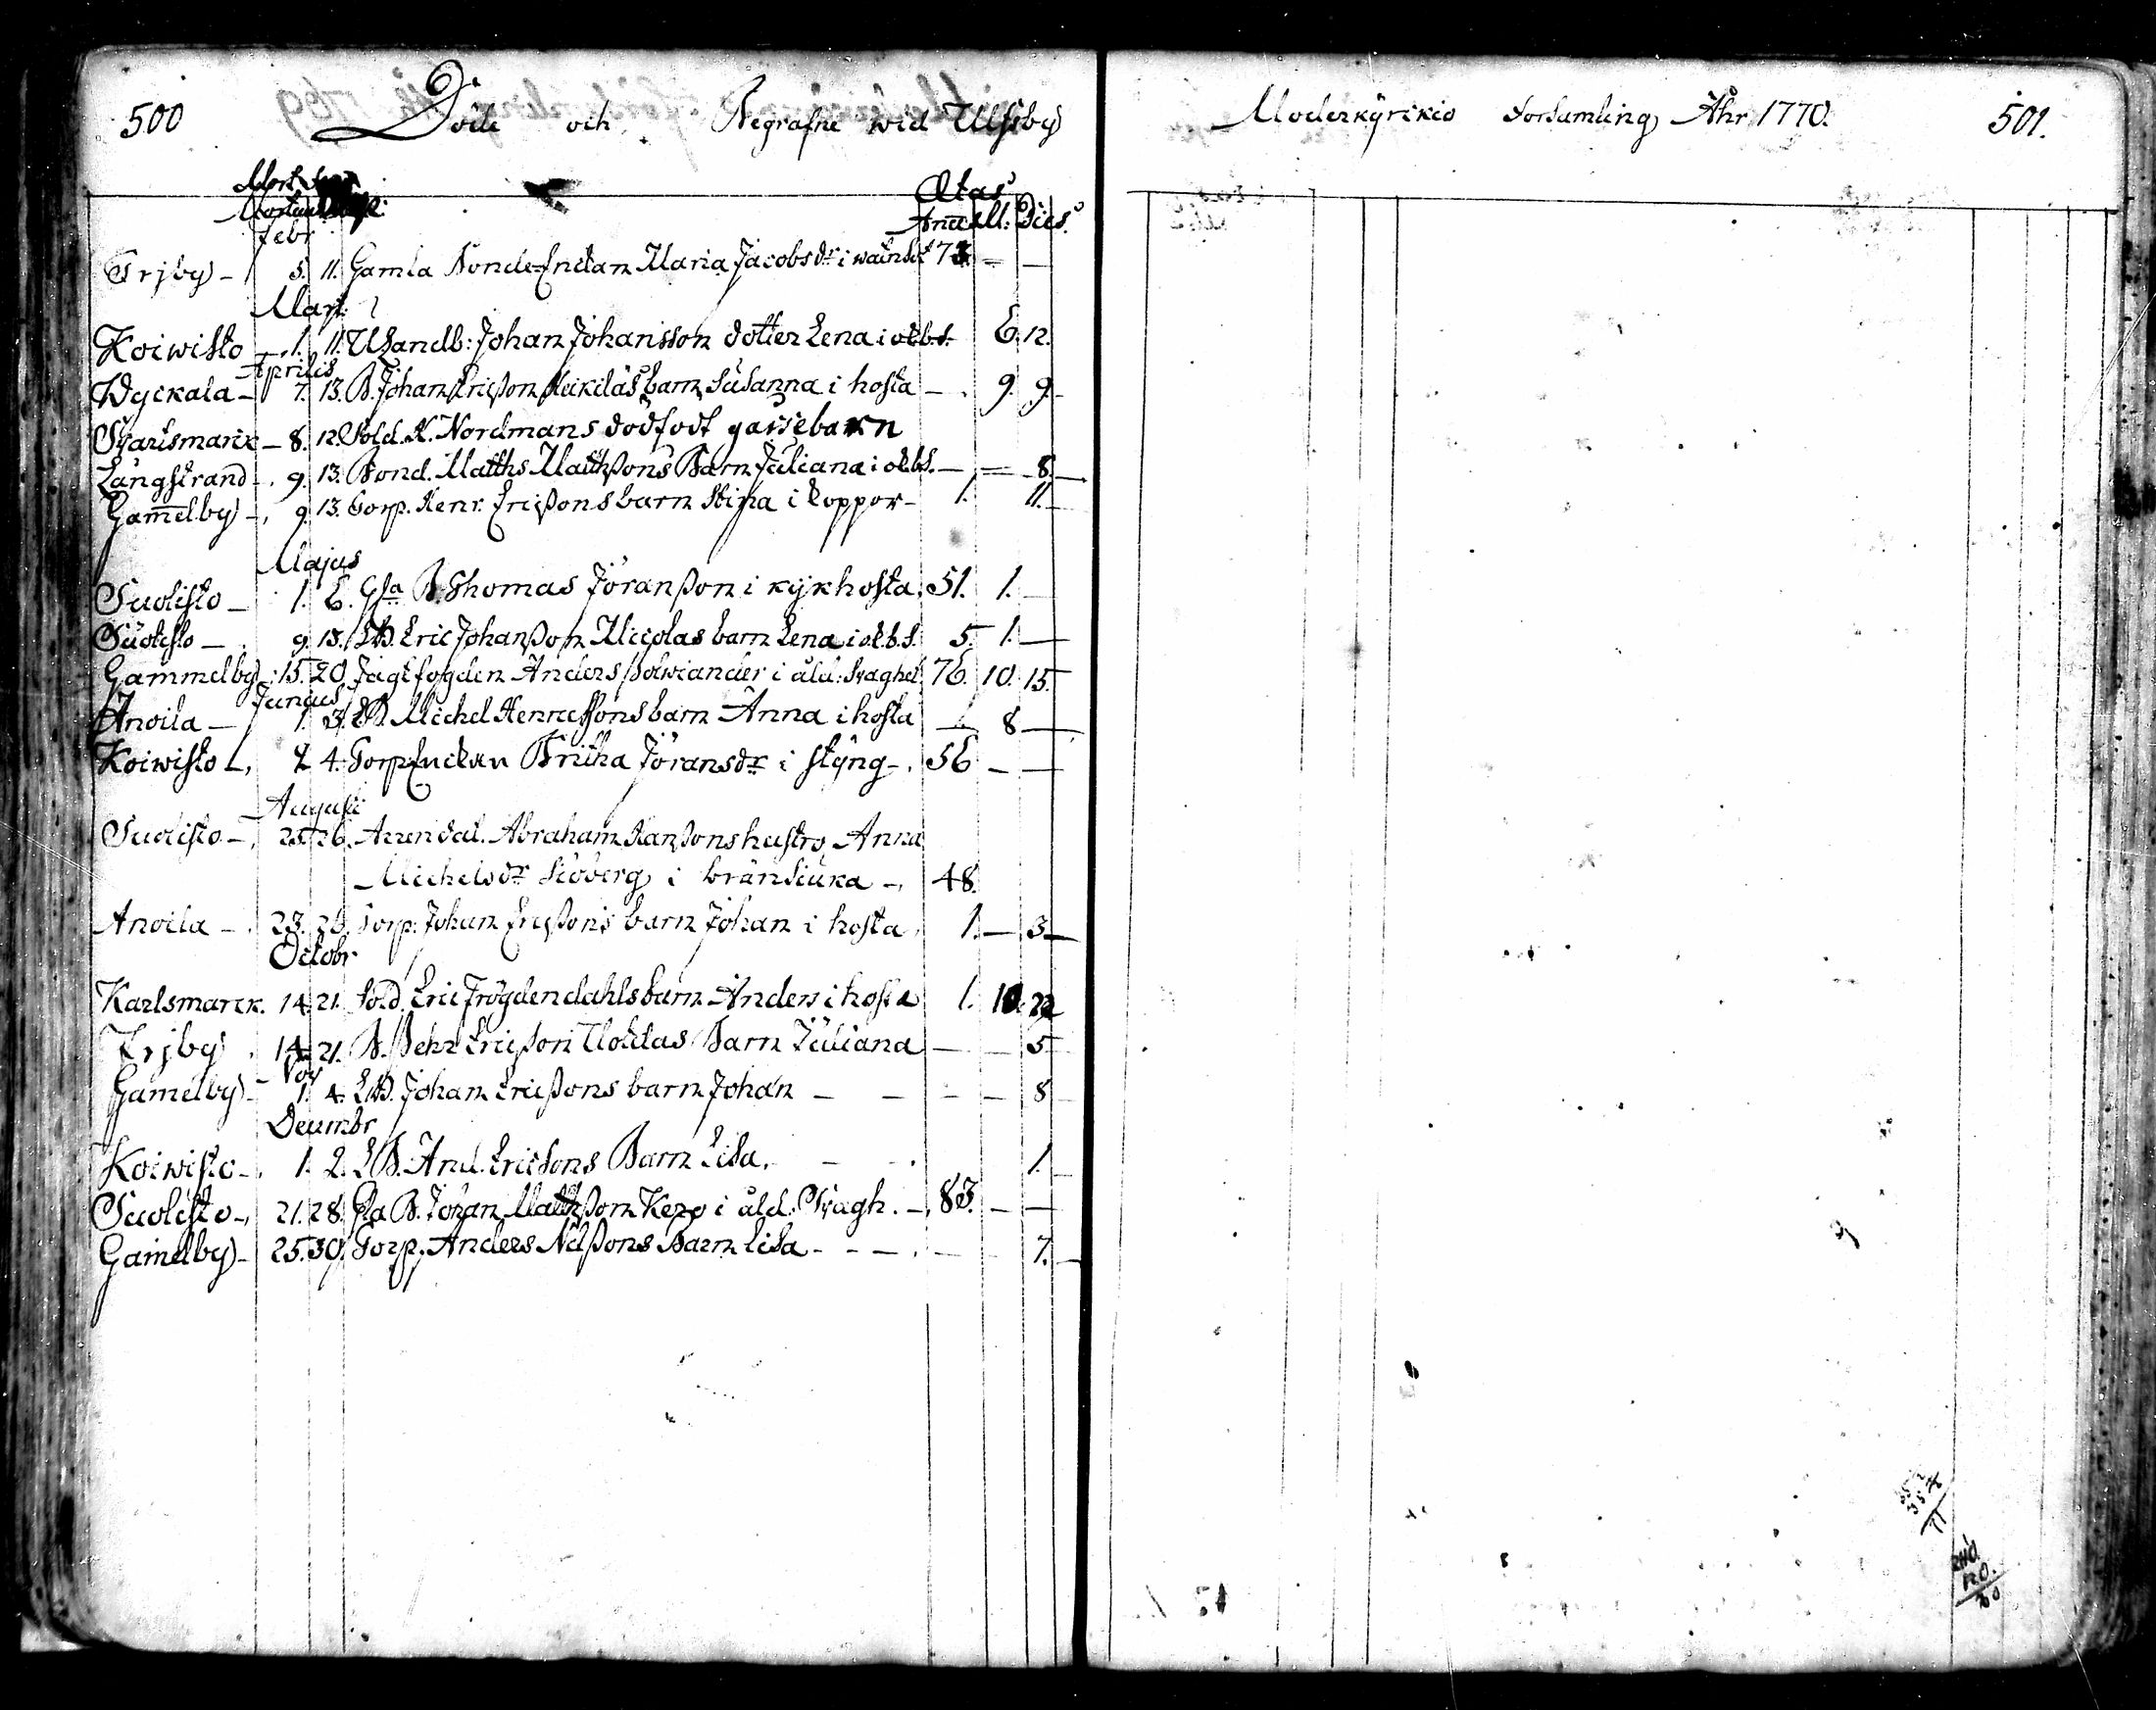 500 Döde och Begrafne wid Ulfsby Moderkyrkio Forsamling Åhr 1770. 501.
Ætas
Annï M: Dies
Febr
Erjby - 5. 11. Gamla Bonde Enckan Maria Jacobsdr i watnsot 73 = -
Mart:
Koiwisto - 1. 11. Usandb: Johan Johansson dotter Lena i okbs. 6. 12.
Aprilis
Wyckala - 7. 13. B. Johan Ericßon Heikiläs barn Susanna i hosta - 9. 9.
Sgarlsmarck - 8. 12. Sold. H. Nordmans dödfödt gåssebarn
Långstrand - 9. 13. Bond. Matths Matthßons Barn Juliana i okbs. - = 8.
Gam̅elby - 9. 13. Torp. Henr. Ericßons barn Stina i koppor - 1. 11.
Majus
Suolisto - 1. 6. Gla B. Thomas Jöranßon i kykhosta 51. 1. -
Suolisto - 9. 13. LB. Eric Johanßon barn Lena i okbs. 5. 1. -
Gammelby - 15. 20. Jagtfogden Anders Polviander i åld: Svaghet 76. 10. 15.
Junius
Anoila - 1. 3. LB Michel Henricssons barn Anna i hosta - 8 -
Koiwisto - 2. 4. Torp Enckan Britha Jöransdr i styng - 56 - -
Augusti
Suolisto - 23. 26. Arrendat. Abraham Hanßons hustro Anna
Michelsdr Siöberg i bränsiuka - 48.
Anoila - 23. 26. Torp. Johan Ericßons barn Johan i hosta 1. - 3 -
Octobr
Karlsmarck. 14. 21. Sold. Eric Frögdendahls barn Anders i hosta 1. 10. 22
Erjby 14. 21. B. Pehr Ericßon Uotilas Barn Juliana - - 5
Nov
Gamelby - 1. 4. LB. Johan Ericßons barn Johan - - - - 8
Decembr
Koiwisto - 1. 2. LB. And. Ericsons Barn Lisa. - 1. -
Suolisto - 21. 28. Gla B. Johan Matthßon Kero i åld: Svagh. - 83. - -
Gamelby - 25. 30. Torp. Anders Nilßons Barn Lisa - - - - 7. -